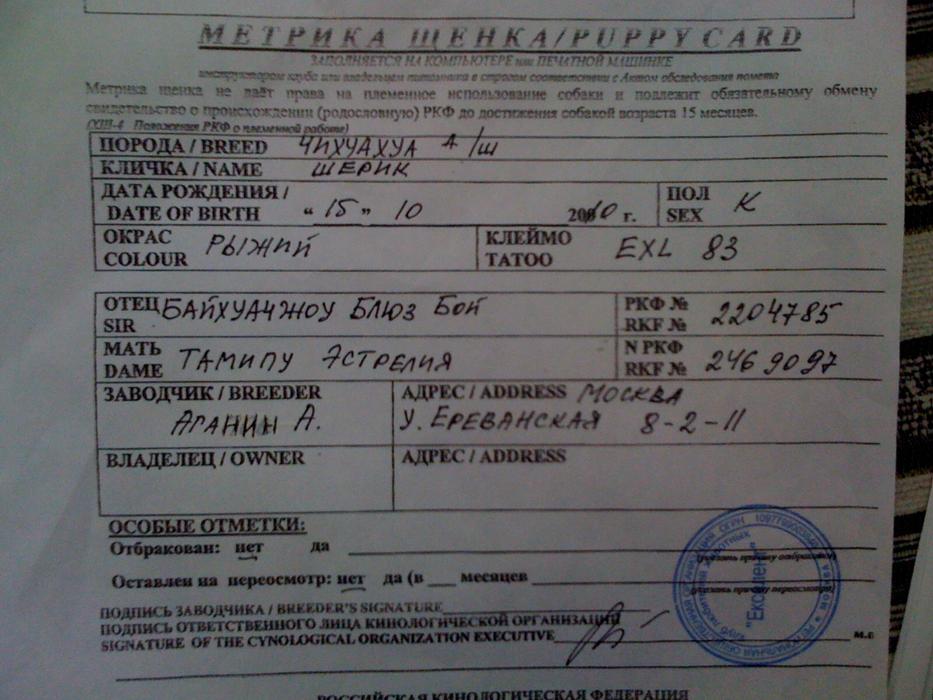 МЕТРИКА ЩЕНКА/PUPPY CARD
ЗАПОЛНЯЕТСЯ НА КОМПЬЮТЕРЕ или ПЕЧАТНОЙ МАШИНКЕ
инструктором клуба или владельцем питомника в строгом соответствии с Актом обследования помета
Метрика щенка не даёт права на племенное использование собаки и подлежит обязательному обмену
свидетельство о происхождении (родословную) РКФ до достижения собакой возраста 15 месяцев.
(XIII-4 Положения РКФ о племенной работе)
ПОРОДА / BREED ЧИХУАХУА Д/Ш
КЛИЧКА / NAME ШЕРИК
ДАТА РОЖДЕНИЯ / DATE OF BIRTH "15" 10 2010 г. ПОЛ SEX К
ОКРАС COLOUR РЫЖИЙ КЛЕЙМО TATOO EXL 83
ОТЕЦ SIR БАЙХУАЧЖОУ БЛЮЗ БОЙ РКФ № RKF № 2204785
МАТЬ DAME ТАМИПУ ЭСТРЕЛИЯ N РКФ RKF № 2469097
ЗАВОДЧИК / BREEDER АДРЕС / ADDRESS МОСКВА
АГАНИН А. У. ЕРЕВАНСКАЯ 8-2-11
ВЛАДЕЛЕЦ / OWNER АДРЕС / ADDRESS
ОСОБЫЕ ОТМЕТКИ:
Отбракован: нет да
(указать причину отбраковки)
Оставлен на пересмотр: нет да (в ___ месяцев
(указать причину пересмотра)
ПОДПИСЬ ЗАВОДЧИКА / BREEDER'S SIGNATURE
ПОДПИСЬ ОТВЕТСТВЕННОГО ЛИЦА КИНОЛОГИЧЕСКОЙ ОРГАНИЗАЦИИ
SIGNATURE OF THE CYNOLOGICAL ORGANIZATION EXECUTIVE м.п
"Ексклент"
РОССИЙСКАЯ КИНОЛОГИЧЕСКАЯ ФЕДЕРАЦИЯ